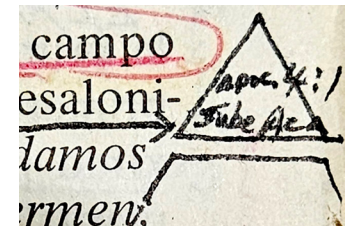 campo
esaloni-
damos
ermen,
Apoc. 4:1
Sube Aca